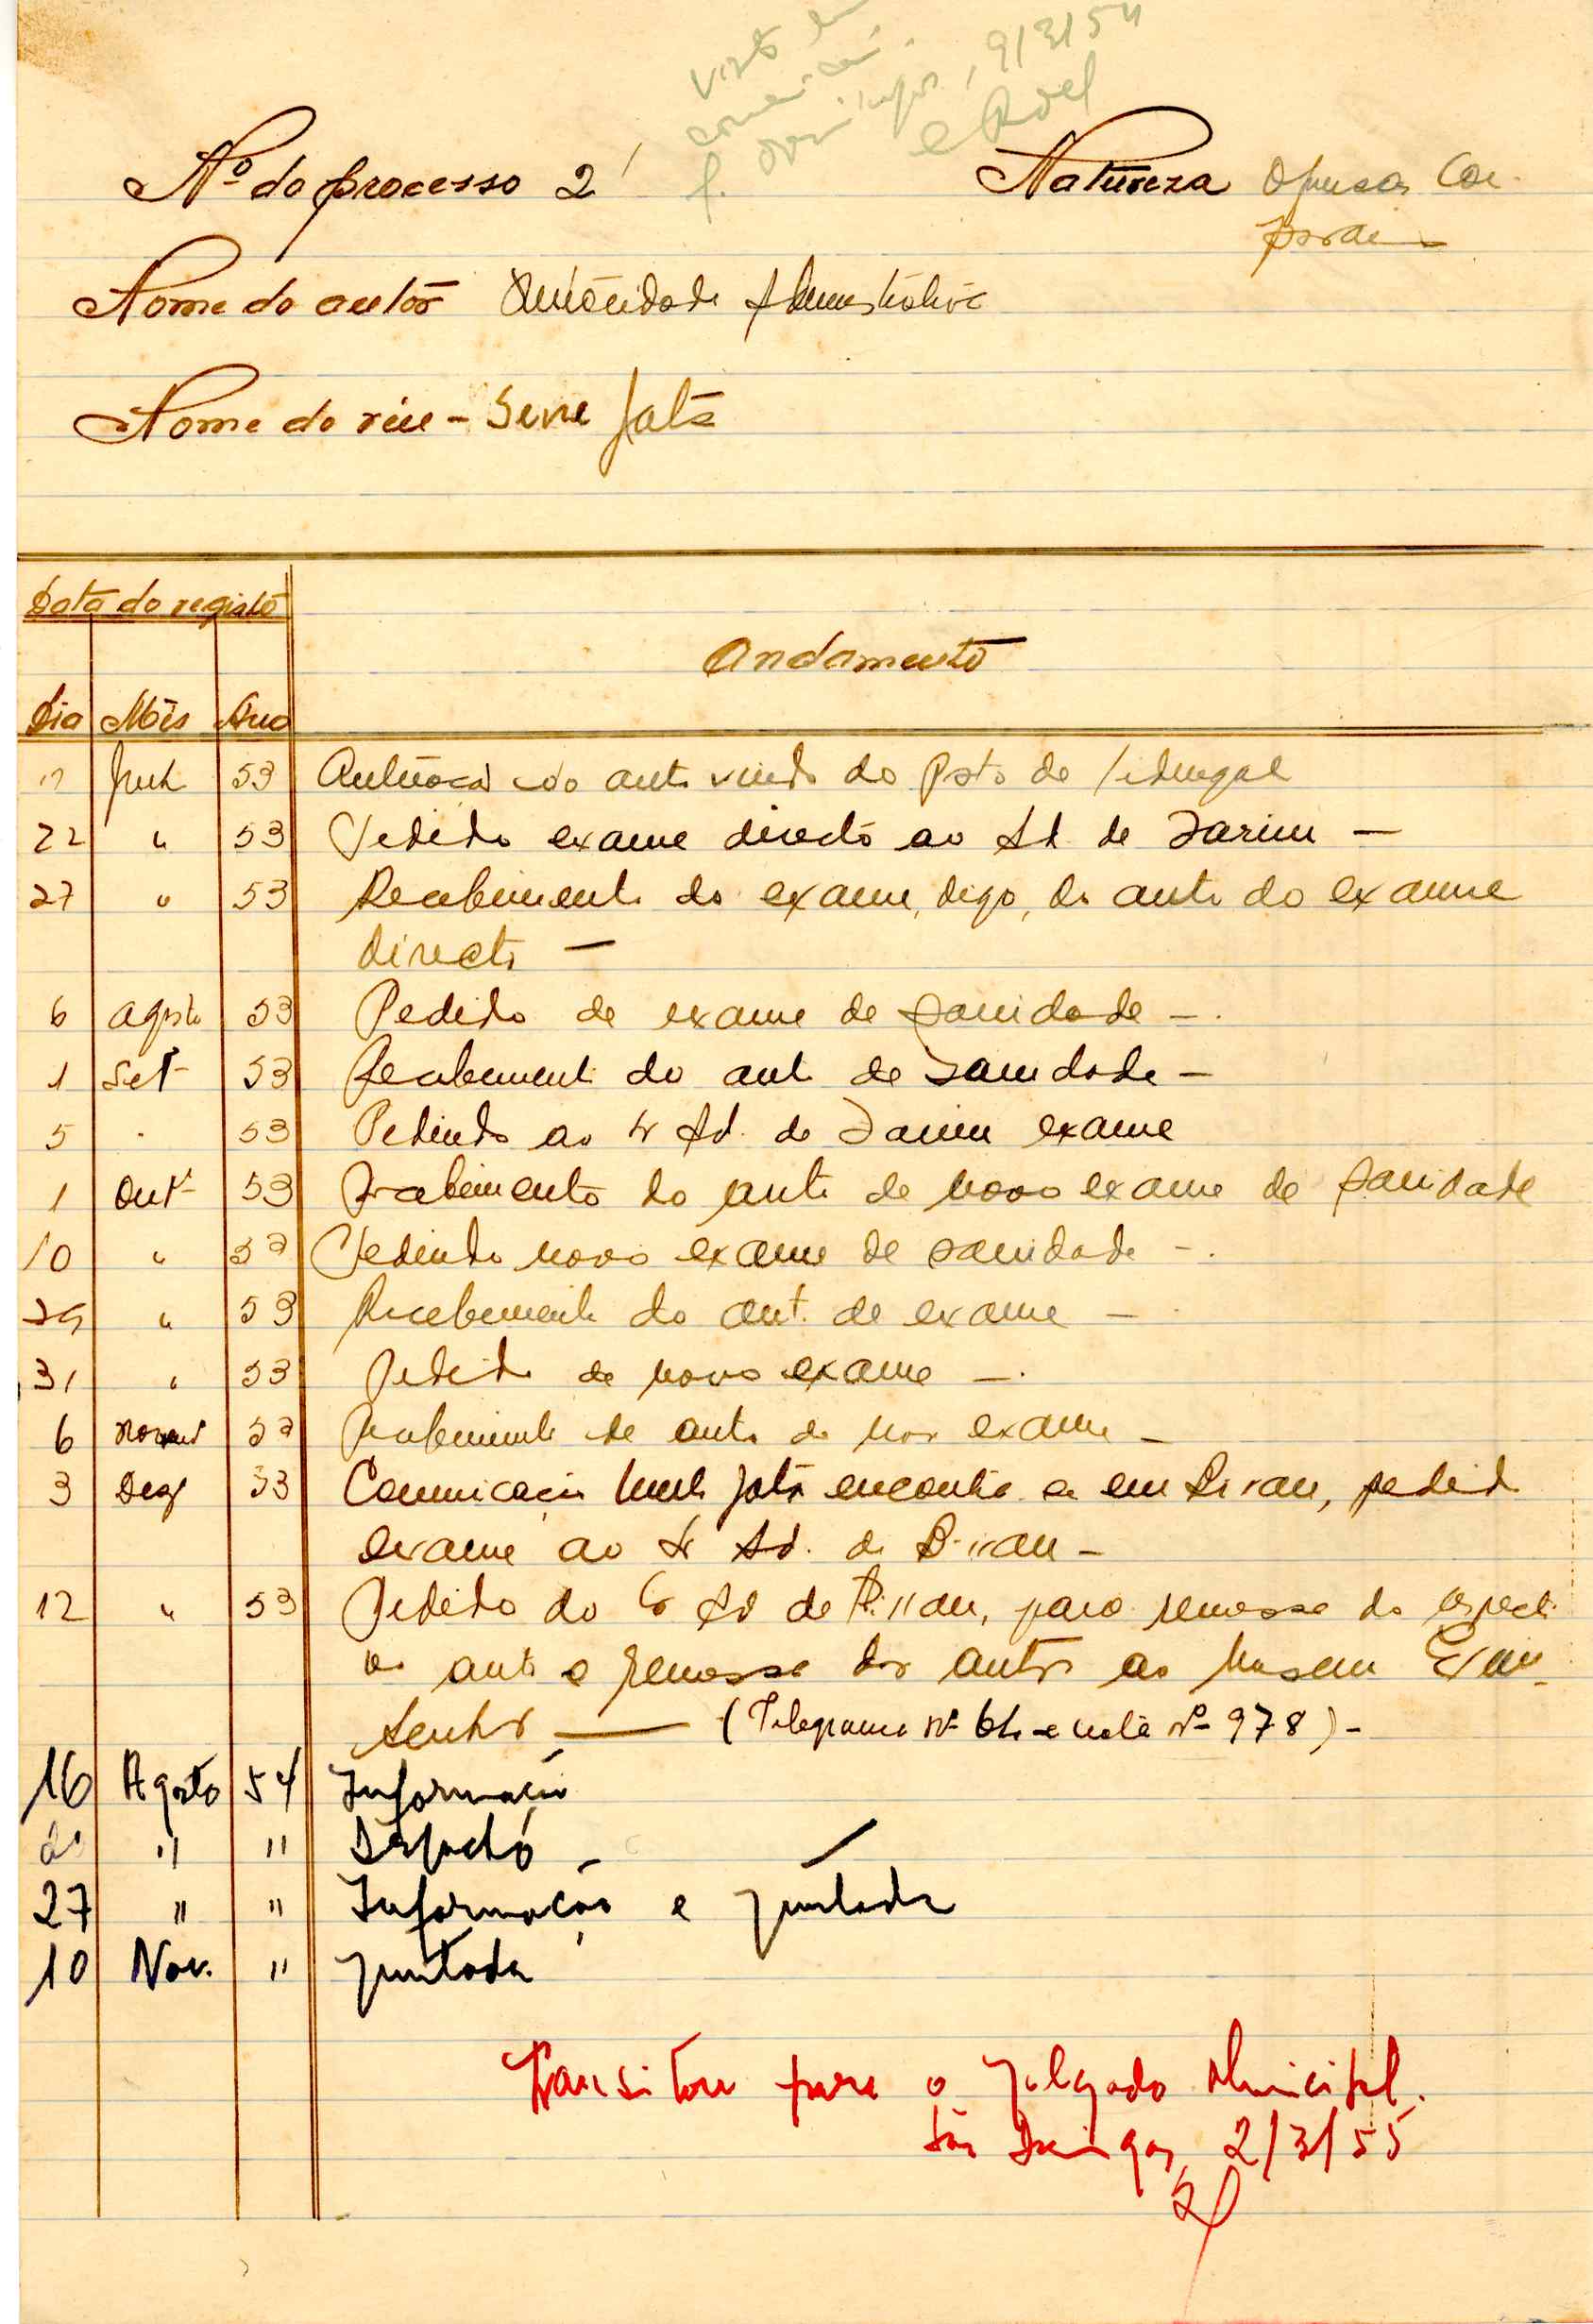 Visto em
9/3/54
Nº do processo 2
Natureza Ofensas Cor-
porais
Nome do autor Autoridade Administrativa
Nome do réu - Jatá
Data do registo
Andamento
Dia Mês Ano
Junh 53 Autuação do auto vindo do Posto de
22 " 53 Pedido exame directo ao Ad. de Farim -
27 " 53 Recebimento do exame, digo, do auto do exame
directo -
6 Agosto 53 Pedido de exame de sanidade -.
1 Setº 53 Recebimento do auto de sanidade -
5 " 53 Pedindo ao Sr Ad. de Farim exame
1 Outº 53 Recebimento do auto de novo exame de sanidade
10 " 53 Pedindo novo exame de sanidade -.
29 " 53 Recebimento do aut. de exame -
31 " 53 Pedido de novo exame -.
6 Novem 53 Recebimento de auto de novo exame -
3 Dez 53 Comunicação Jatá encontra se em Bissau, pedido
exame ao Sr Ad. de Bissau -
12 " 53 Pedido do Sr Ad de Bissau, para remessa do respecti
vo auto e remessa dos autos ao mesmo Exmº
Senhor — (Telegrama nº e nota nº 978) -
16 Agosto 54 Informação
" " Despacho -
27 " " Informação e juntada
10 Nov. " Juntada
Transitou para o Julgado Municipal.
São Domingos, 2/3/55